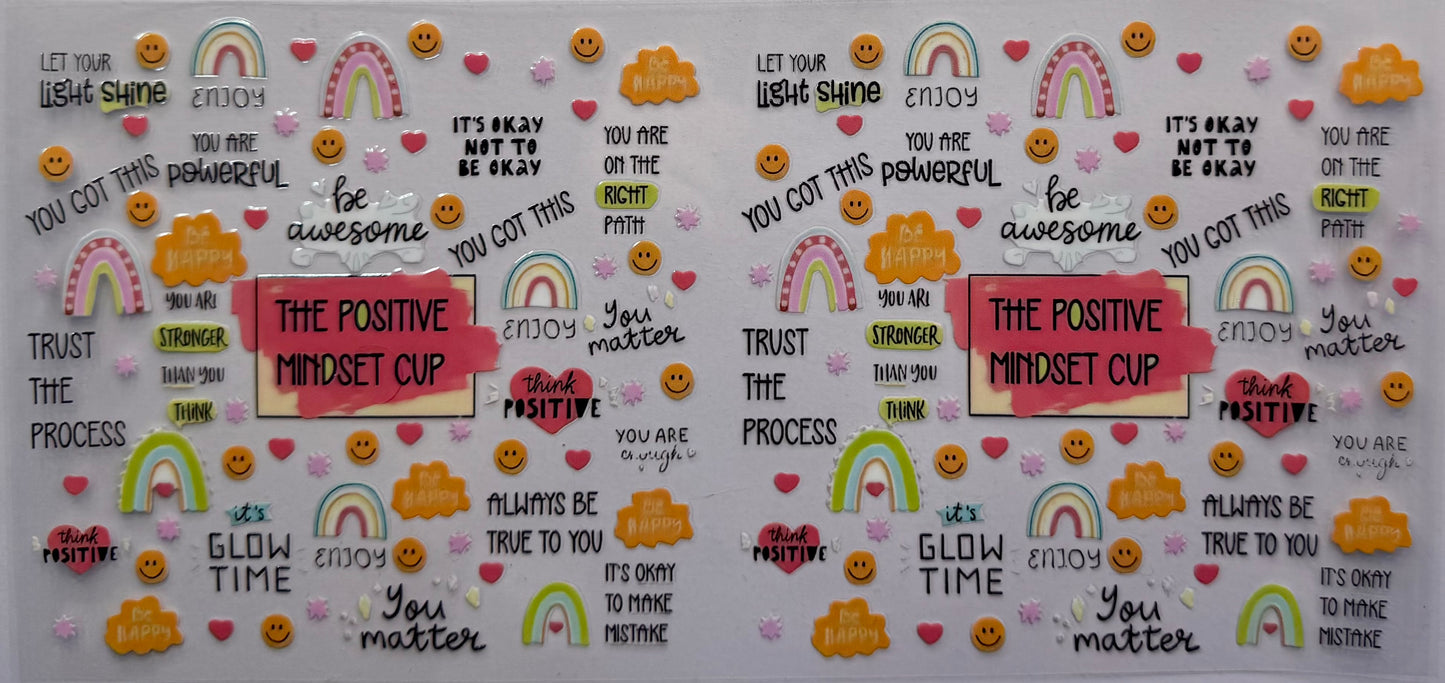 LET YOUR
Light SHINE
ENJOY
BE
HAPPY
YOU ARE
POWERFUL
IT'S OKAY
NOT TO
BE OKAY
YOU ARE
ON THE
RIGHT
PATH
YOU GOT THIS
be
awesome
YOU GOT THIS
BE
HAPPY
YOU ARE
STRONGER
THAN YOU
THINK
THE POSITIVE
MINDSET CUP
ENJOY
You
matter
TRUST
THE
PROCESS
think
POSITIVE
YOU ARE
enough
BE
HAPPY
ALWAYS BE
TRUE TO YOU
BE
HAPPY
think
POSITIVE
it's
GLOW
TIME
ENJOY
IT'S OKAY
TO MAKE
MISTAKE
BE
HAPPY
You
matter
LET YOUR
Light SHINE
ENJOY
BE
HAPPY
YOU ARE
POWERFUL
IT'S OKAY
NOT TO
BE OKAY
YOU ARE
ON THE
RIGHT
PATH
YOU GOT THIS
be
awesome
YOU GOT THIS
BE
HAPPY
YOU ARE
STRONGER
THAN YOU
THINK
THE POSITIVE
MINDSET CUP
ENJOY
You
matter
TRUST
THE
PROCESS
think
POSITIVE
YOU ARE
enough
BE
HAPPY
ALWAYS BE
TRUE TO YOU
BE
HAPPY
think
POSITIVE
it's
GLOW
TIME
ENJOY
IT'S OKAY
TO MAKE
MISTAKE
BE
HAPPY
You
matter